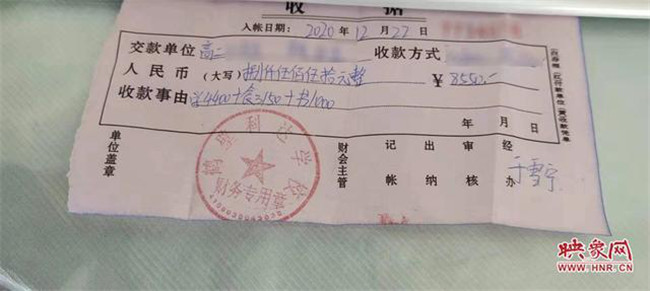 收 据
入帐日期: 2020 年 12 月 27 日
交款单位 高二 收款方式
人民币(大写) 捌仟伍佰伍拾元整 ¥ 8550.-
收款事由 学4400+食3150+书1000
年 月 日
单位盖章 财会主管 记帐 出纳 审核 经办 于雪宁
鹤壁利达学校
财务专用章
映象网
WWW.HNR.CN